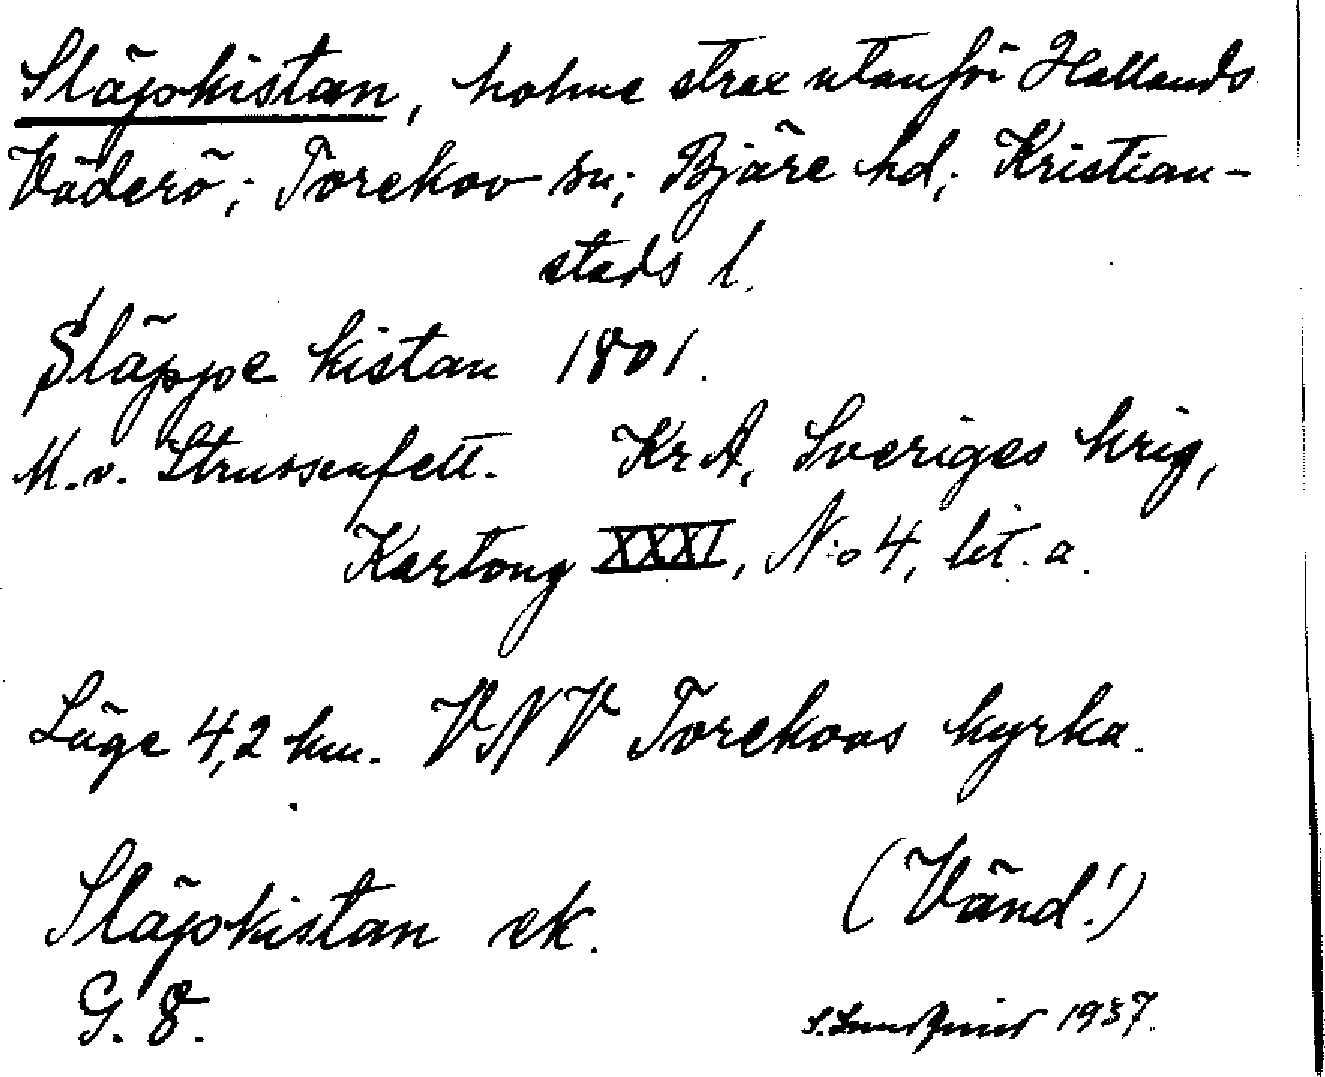 Släpkistan, holme strax utanför Hallands
Väderö; Torekov sn; Bjäre hd; Kristian-
stads l.
Släppe kistan 1801.
M. v. Strussenfelt. Kr A, Sveriges krig,
Kartong XXXI, N:o 4, lit. a.
Läge 4,2 km. VNV Torekovs kyrka.
Släpkistan ek.
(Vänd!)
G. 8.
S. Lundqvist 1937.